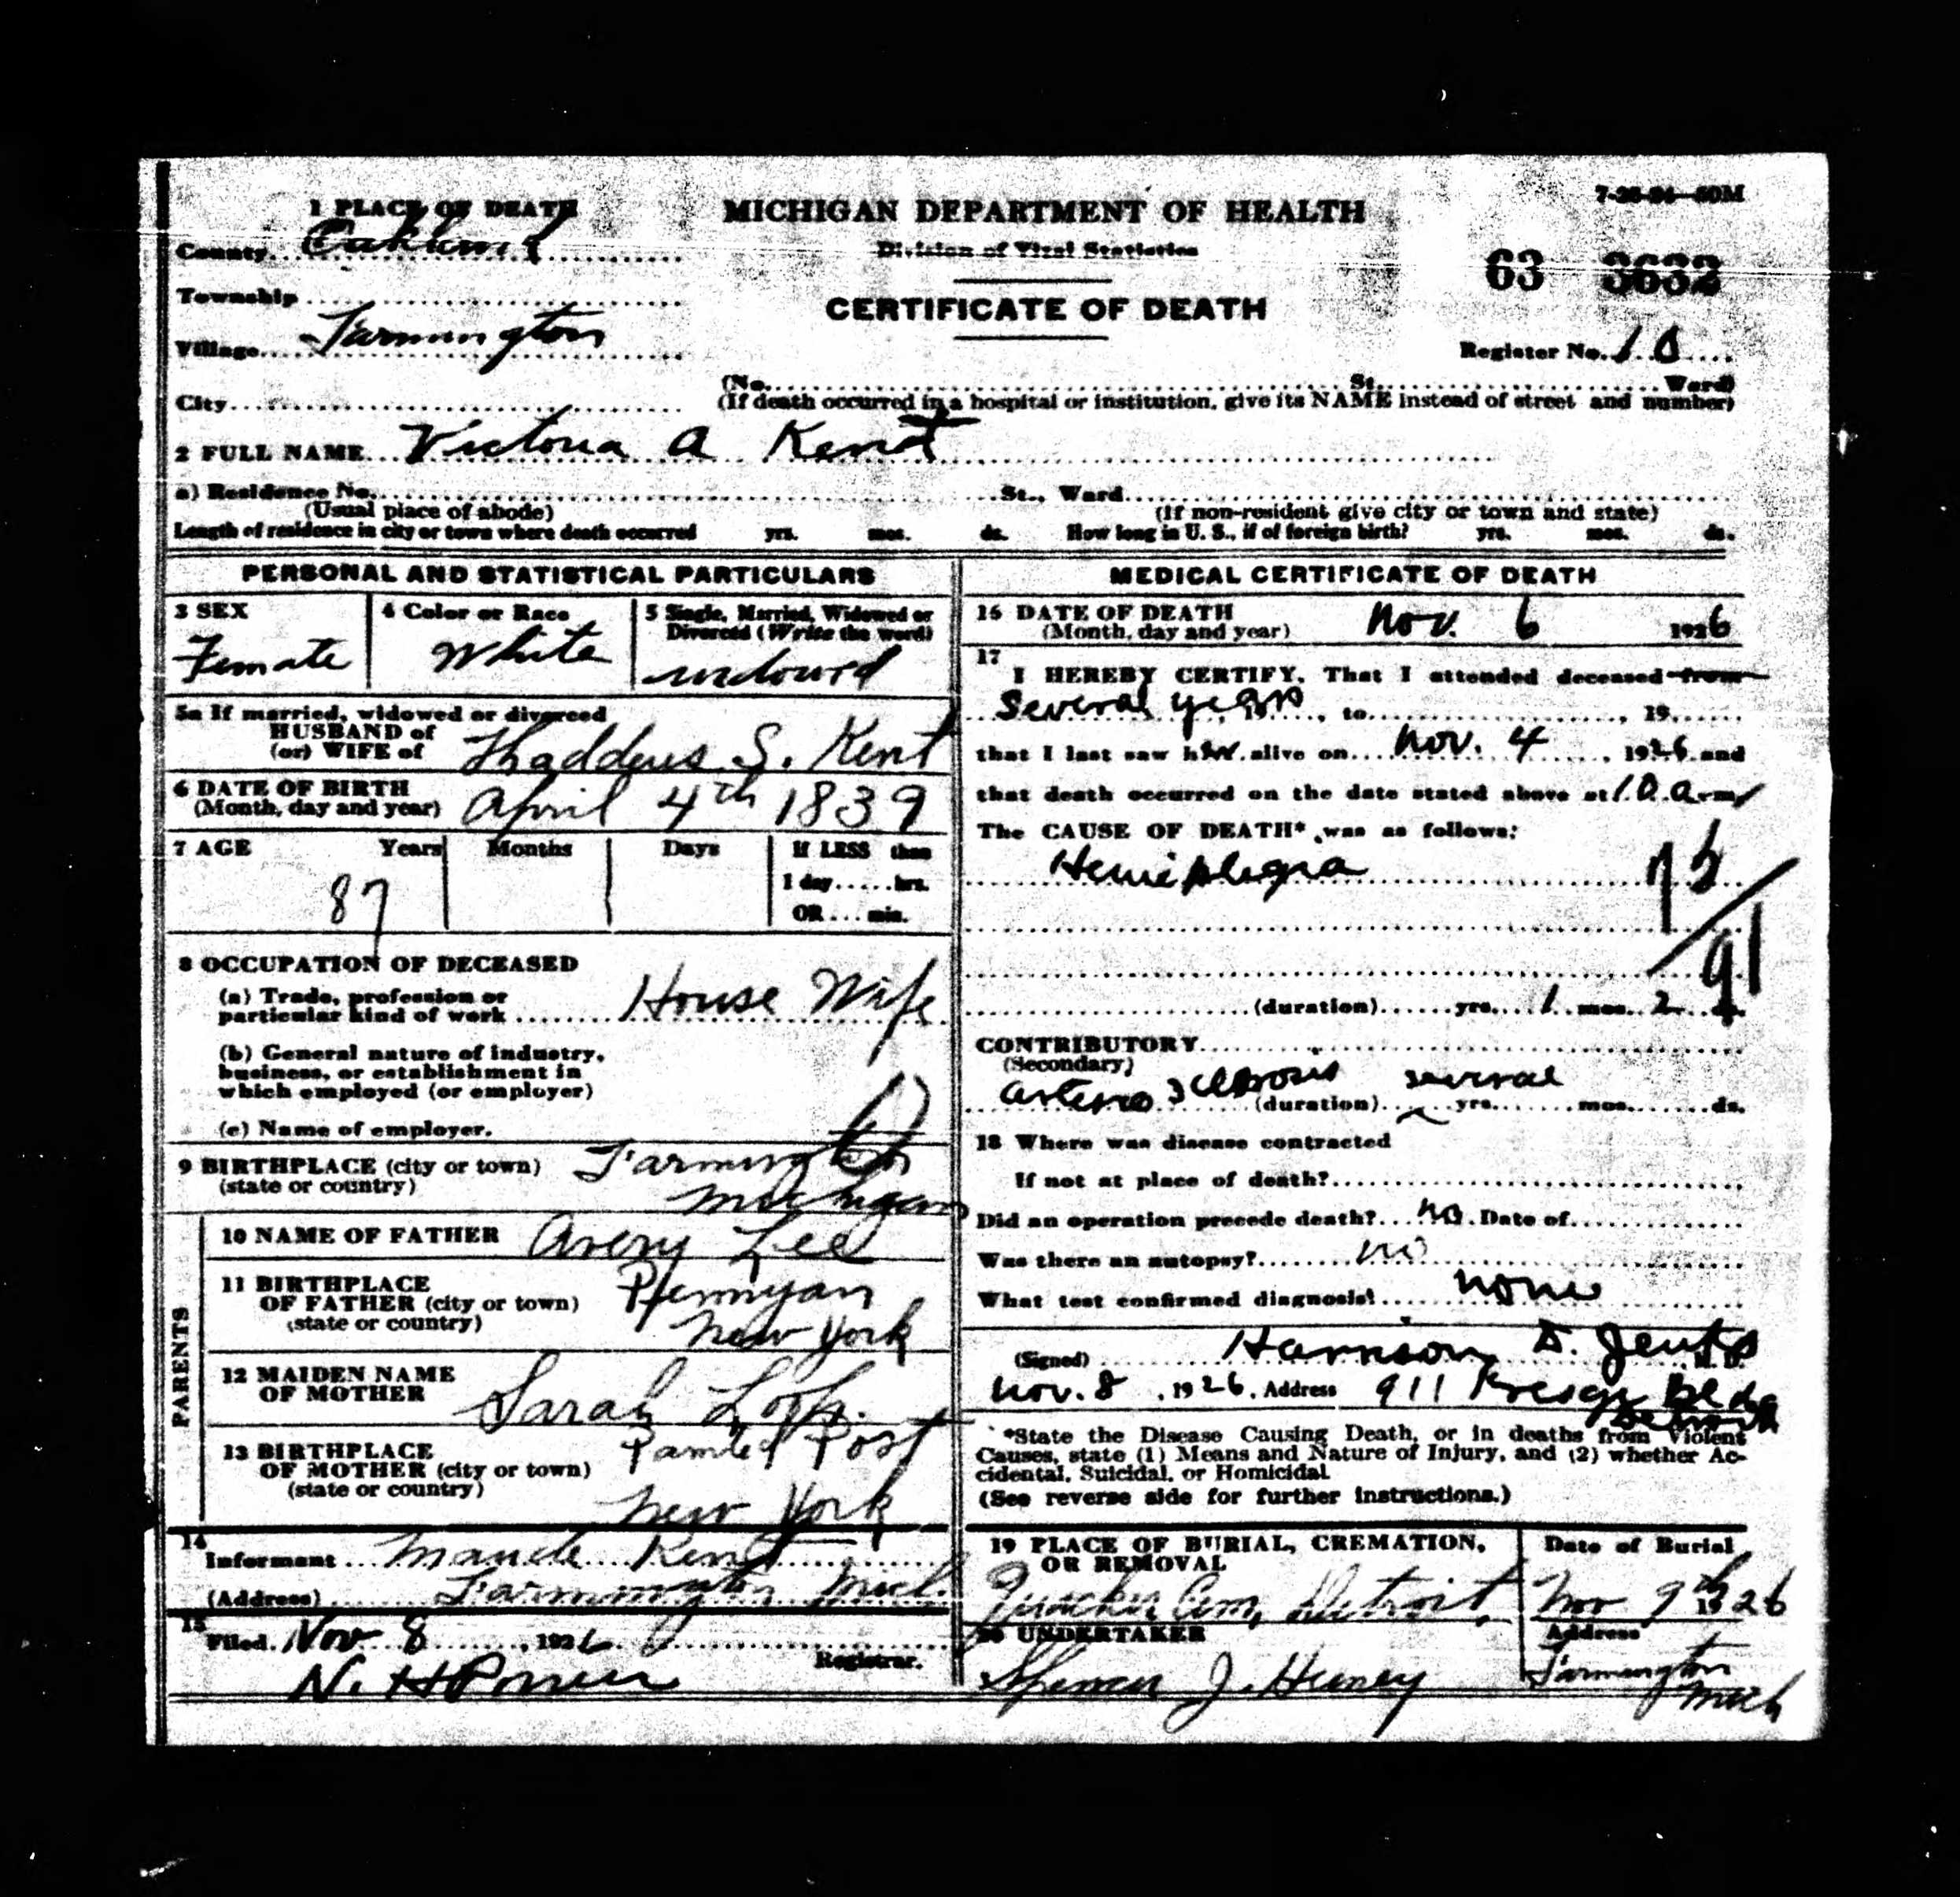 7-26-24—50M
1 PLACE OF DEATH
MICHIGAN DEPARTMENT OF HEALTH
County Oakland
Division of Vital Statistics
63 3632
Township
CERTIFICATE OF DEATH
Village Farmington
Register No. 10
(No. St. Ward)
City
(If death occurred in a hospital or institution, give its NAME instead of street and number)
2 FULL NAME Victoria A Kent
a) Residence No. St., Ward
(Usual place of abode) (If non-resident give city or town and state)
Length of residence in city or town where death occurred yrs. mos. ds. How long in U. S., if of foreign birth? yrs. mos. ds.
PERSONAL AND STATISTICAL PARTICULARS
3 SEX 4 Color or Race 5 Single, Married, Widowed or
Divorced (Write the word)
Female White widowed
5a If married, widowed or divorced
HUSBAND of
(or) WIFE of Thaddeus S. Kent
6 DATE OF BIRTH
(Month, day and year) April 4th 1839
7 AGE Years Months Days If LESS than
1 day......hrs.
87 OR ... min.
8 OCCUPATION OF DECEASED
(a) Trade, profession or
particular kind of work House Wife
(b) General nature of industry,
business, or establishment in
which employed (or employer)
(c) Name of employer.
9 BIRTHPLACE (city or town) Farmington
(state or country) Michigan
PARENTS
10 NAME OF FATHER Avery Lee
11 BIRTHPLACE
OF FATHER (city or town) Pennyan
(state or country) New York
12 MAIDEN NAME
OF MOTHER Sarah
13 BIRTHPLACE Painted Post
OF MOTHER (city or town)
(state or country) New York
14
Informant Maude Kent
(Address) Farmington Mich.
15
Filed Nov 8, 1926
Registrar.
MEDICAL CERTIFICATE OF DEATH
16 DATE OF DEATH
(Month, day and year) Nov. 6 1926
17
I HEREBY CERTIFY, That I attended deceased from
several years, 19, to, 19
that I last saw her alive on Nov. 4, 1926 and
that death occurred on the date stated above at 10 a m
The CAUSE OF DEATH* was as follows:
Hemiplegia
91
(duration) yrs. 1 mos. 2
CONTRIBUTORY
(Secondary)
arterio sclerosis several
(duration) yrs. mos. ds.
18 Where was disease contracted
If not at place of death?
Did an operation precede death? no Date of
Was there an autopsy? no
What test confirmed diagnosis? none
(Signed) Harrison D. Jenks M. D.
Nov. 8, 1926, Address 911 Kresge Bldg
Detroit
*State the Disease Causing Death, or in deaths from Violent
Causes, state (1) Means and Nature of Injury, and (2) whether Ac-
cidental, Suicidal, or Homicidal
(See reverse side for further instructions.)
19 PLACE OF BURIAL, CREMATION,
OR REMOVAL
Date of Burial
Cem, Detroit, Nov 9th 1926
20 UNDERTAKER Address
Spencer J. Heeney Farmington
Mich